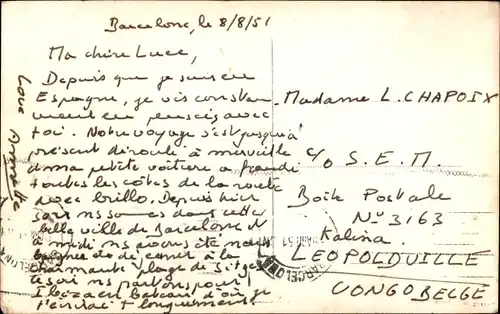 Barcelone, le 8/8/51
Ma chère Luce,
Depuis que je suis en
Espagne, je vis constam
ment en pensées avec
toi. Notre voyage s'est jusqu'à
présent déroulé à merveille
& ma petite voiture a franchi
toutes les côtes de la route
avec brillo. Depuis hier
soir ns sommes dans cette
belle ville de Barcelone &
à midi ns avons été nous
baigner & déjeuner à la
charmante plage de Sitges
Ce soir ns partons pour
Ibiza en bateau d'où je
t'écrirai + longuement.
Love
Madame L. CHAPOIX
c/o S.E.M.
Boîte Postale
N° 3163
Kalina
LEOPOLDVILLE
CONGO BELGE
BARCELONA